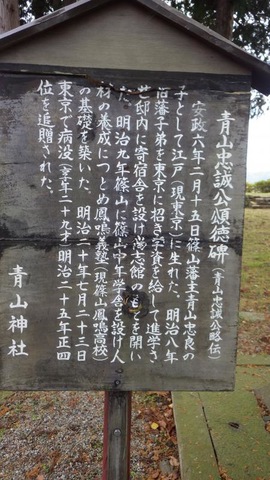 青山忠誠公頌徳碑(青山忠誠公略伝)
安政六年二月十五日篠山藩主青山忠良の
子として江戸(現東京)に生れた。明治八年
旧藩子弟を東京に招き学資を給して進学さ
せ邸内に寄宿舎を設け尚志館のもとを開い
た。明治九年篠山に篠山中年学舎を設け人
材の養成につとめ鳳鳴義塾(現篠山鳳鳴高校)
の基礎を築いた。明治二十年七月二十三日
東京で病没(享年二十九才)明治二十五年正四
位を追贈された。
青山神社